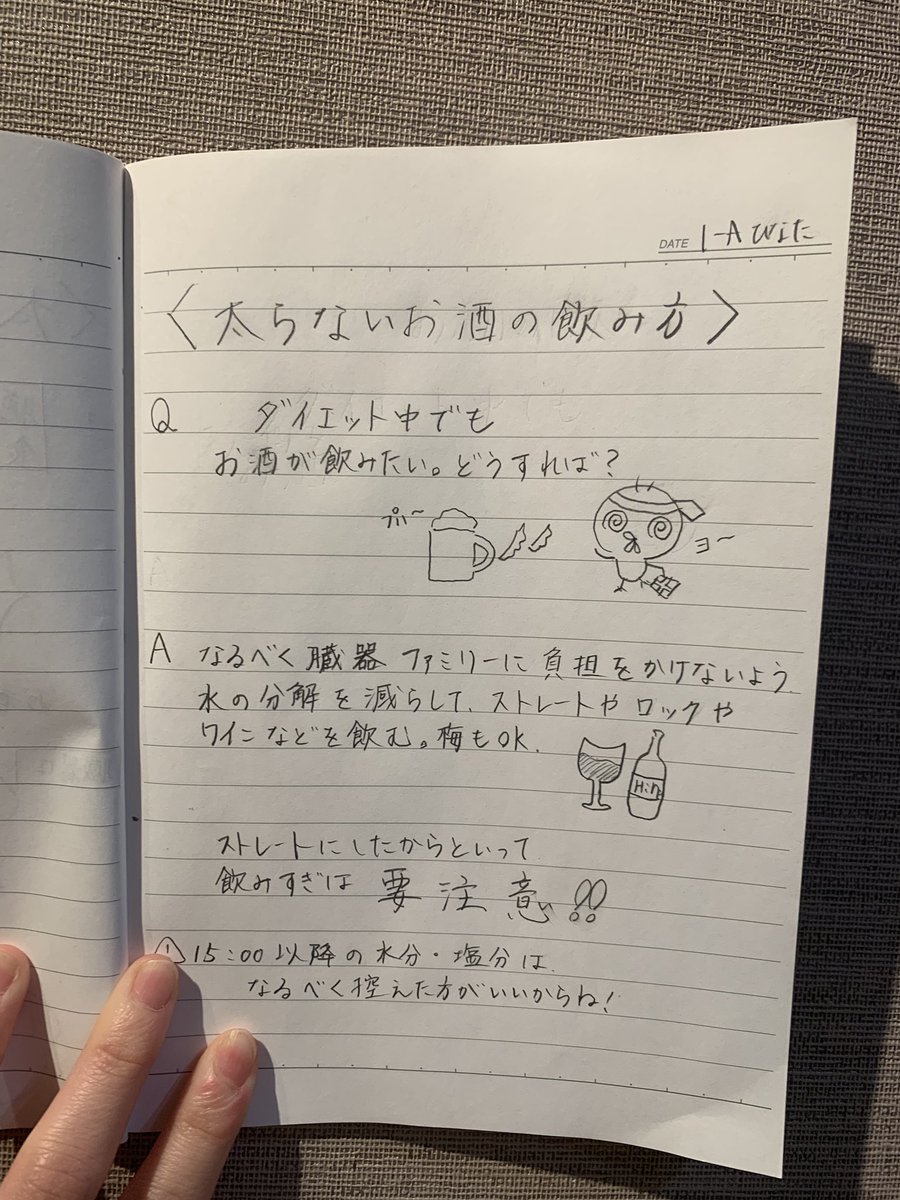 DATE 1-A ひよた
〈太らないお酒の飲み方〉
Q ダイエット中でも
お酒が飲みたい。どうすれば?
ポ〜
ヨ〜
A なるべく臓器ファミリーに負担をかけないよう
水の分解を減らして、ストレートやロックや
ワインなどを飲む。梅もOK.
ストレートにしたからといって
飲みすぎは 要注意!!
! 15:00以降の水分・塩分は
なるべく控えた方がいいからね!